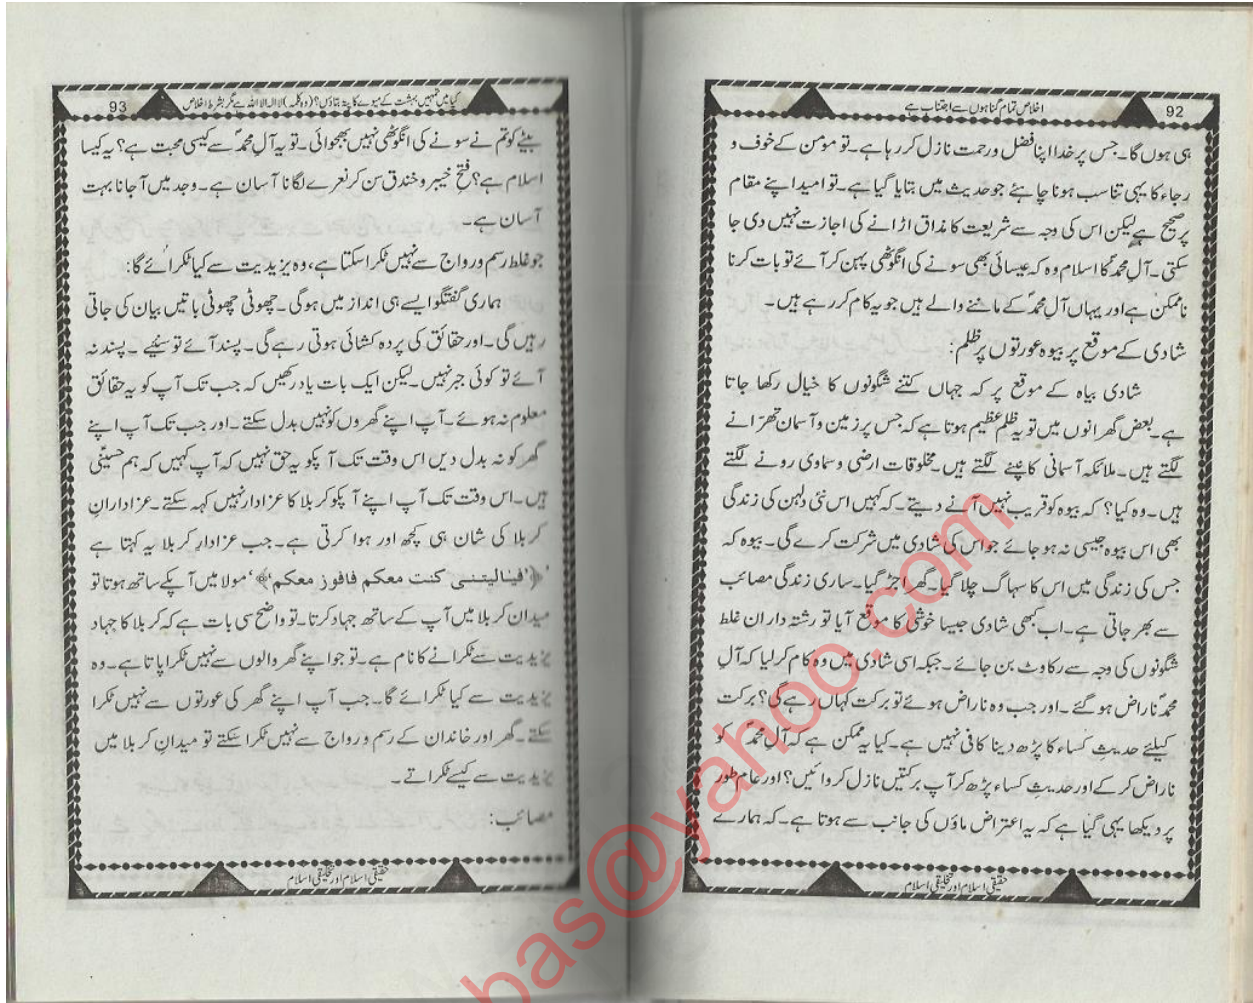 92
اخلاص تمام گناہوں سے اجتناب ہے
ہی ہوں گا۔ جس پر خدا اپنا فضل ورحمت نازل کر رہا ہے۔ تو مومن کے خوف و
رجاء کا یہی تناسب ہونا چاہئے جو حدیث میں بتایا گیا ہے۔ تو امید اپنے مقام
پر صحیح ہے لیکن اس کی وجہ سے شریعت کا مذاق اڑانے کی اجازت نہیں دی جا
سکتی۔ آلِ محمدؐ کا اسلام وہ کہ عیسائی بھی سونے کی انگوٹھی پہن کر آئے تو بات کرنا
ناممکن ہے اور یہاں آلِ محمدؐ کے ماننے والے ہیں جو یہ کام کر رہے ہیں۔
شادی کے موقع پر بیوہ عورتوں پر ظلم:
شادی بیاہ کے موقع پر کہ جہاں کتنے شگونوں کا خیال رکھا جاتا
ہے۔ بعض گھرانوں میں تو یہ ظلم عظیم ہوتا ہے کہ جس پر زمین و آسمان تھرّانے
لگتے ہیں۔ ملائکہ آسمانی کانپنے لگتے ہیں۔ مخلوقات ارضی و سماوی رونے لگتے
ہیں۔ وہ کیا؟ کہ بیوہ کو قریب نہیں آنے دیتے۔ کہ کہیں اس نئی دلہن کی زندگی
بھی اس بیوہ جیسی نہ ہو جائے جو اس کی شادی میں شرکت کرے گی۔ بیوہ کہ
جس کی زندگی میں اس کا سہاگ چلا گیا۔ گھر اجڑ گیا۔ ساری زندگی مصائب
سے بھر جاتی ہے۔ اب کبھی شادی جیسا خوشی کا موقع آیا تو رشتہ داران غلط
شگونوں کی وجہ سے رکاوٹ بن جائے۔ جبکہ اسی شادی میں وہ کام کر لیا کہ آلِ
محمدؐ ناراض ہو گئے۔ اور جب وہ ناراض ہوئے تو برکت کہاں رہے گی؟ برکت
کیلئے حدیثِ کساء کا پڑھ دینا کافی نہیں ہے۔ کیا یہ ممکن ہے کہ آلِ محمدؐ کو
ناراض کر کے اور حدیثِ کساء پڑھ کر آپ برکتیں نازل کروائیں؟ اور عام طور
پر دیکھا یہی گیا ہے کہ یہ اعتراض ماؤں کی جانب سے ہوتا ہے۔ کہ ہمارے
حقیقی اسلام اور تخلیقی اسلام
93
کیا میں تمہیں بہشت کے میوے کا پتہ بتاؤں؟ (وہ کلمہ) لا الہ الا اللہ ہے مگر بشرط اخلاص
بیٹے کو تم نے سونے کی انگوٹھی نہیں بھجوائی۔ تو یہ آلِ محمدؐ سے کیسی محبت ہے؟ یہ کیسا
اسلام ہے؟ فتح خیبر و خندق سن کر نعرے لگانا آسان ہے۔ وجد میں آ جانا بہت
آسان ہے۔
جو غلط رسم و رواج سے نہیں ٹکرا سکتا ہے، وہ یزیدیت سے کیا ٹکرائے گا:
ہماری گفتگو ایسے ہی انداز میں ہوگی۔ چھوٹی چھوٹی باتیں بیان کی جاتی
رہیں گی۔ اور حقائق کی پردہ کشائی ہوتی رہے گی۔ پسند آئے تو سنیے۔ پسند نہ
آئے تو کوئی جبر نہیں۔ لیکن ایک بات یاد رکھیں کہ جب تک آپ کو یہ حقائق
معلوم نہ ہوئے۔ آپ اپنے گھروں کو نہیں بدل سکتے۔ اور جب تک آپ اپنے
گھر کو نہ بدل دیں اس وقت تک آپکو یہ حق نہیں کہ آپ کہیں کہ ہم حسینیؑ
ہیں۔ اس وقت تک آپ اپنے آپکو کربلا کا عزادار نہیں کہہ سکتے۔ عزادارانِ
کربلا کی شان ہی کچھ اور ہوا کرتی ہے۔ جب عزادارِ کربلا یہ کہتا ہے
’﴿’فیالیتنی کنت معکم فافوز معکم‘﴾‘ مولا میں آپکے ساتھ ہوتا تو
میدان کربلا میں آپ کے ساتھ جہاد کرتا۔ تو واضح سی بات ہے کہ کربلا کا جہاد
یزیدیت سے ٹکرانے کا نام ہے۔ تو جو اپنے گھر والوں سے نہیں ٹکرا پاتا ہے۔ وہ
یزیدیت سے کیا ٹکرائے گا۔ جب آپ اپنے گھر کی عورتوں سے نہیں ٹکرا
سکتے۔ گھر اور خاندان کے رسم و رواج سے نہیں ٹکرا سکتے تو میدانِ کربلا میں
یزیدیت سے کیسے ٹکراتے۔
مصائب:
حقیقی اسلام اور تخلیقی اسلام
bas@yahoo.com